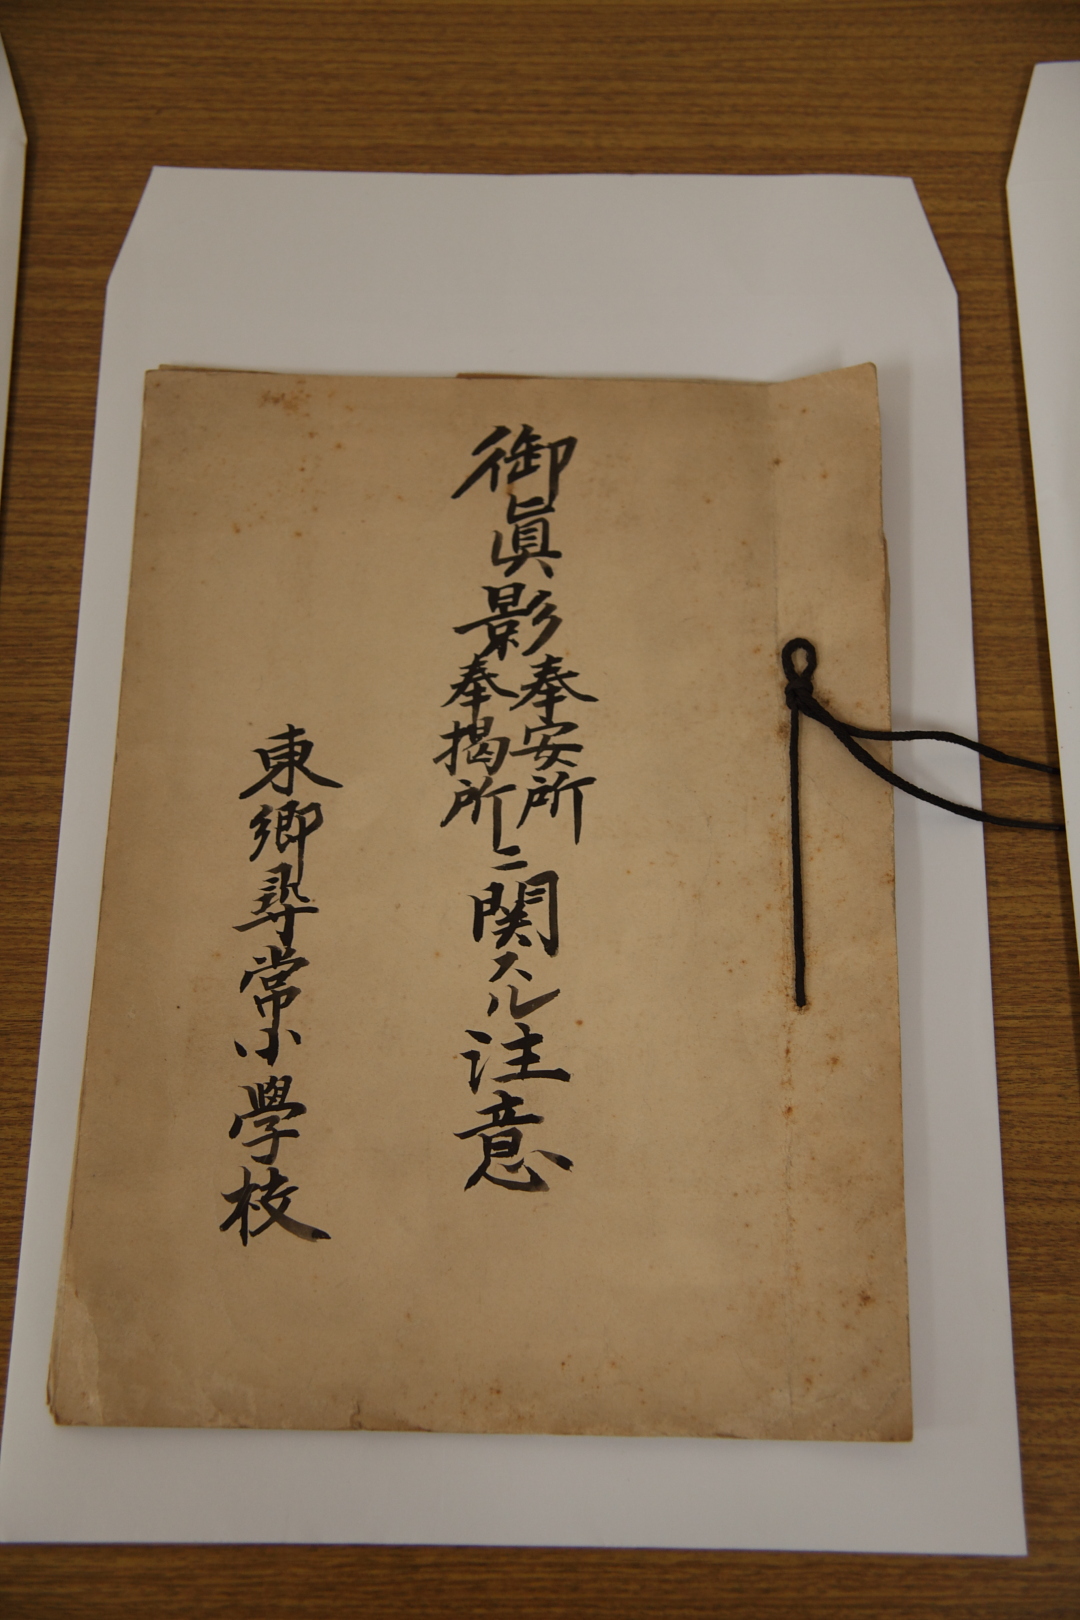 御眞影奉安所奉揭所ニ関スル注意
東郷尋常小學校